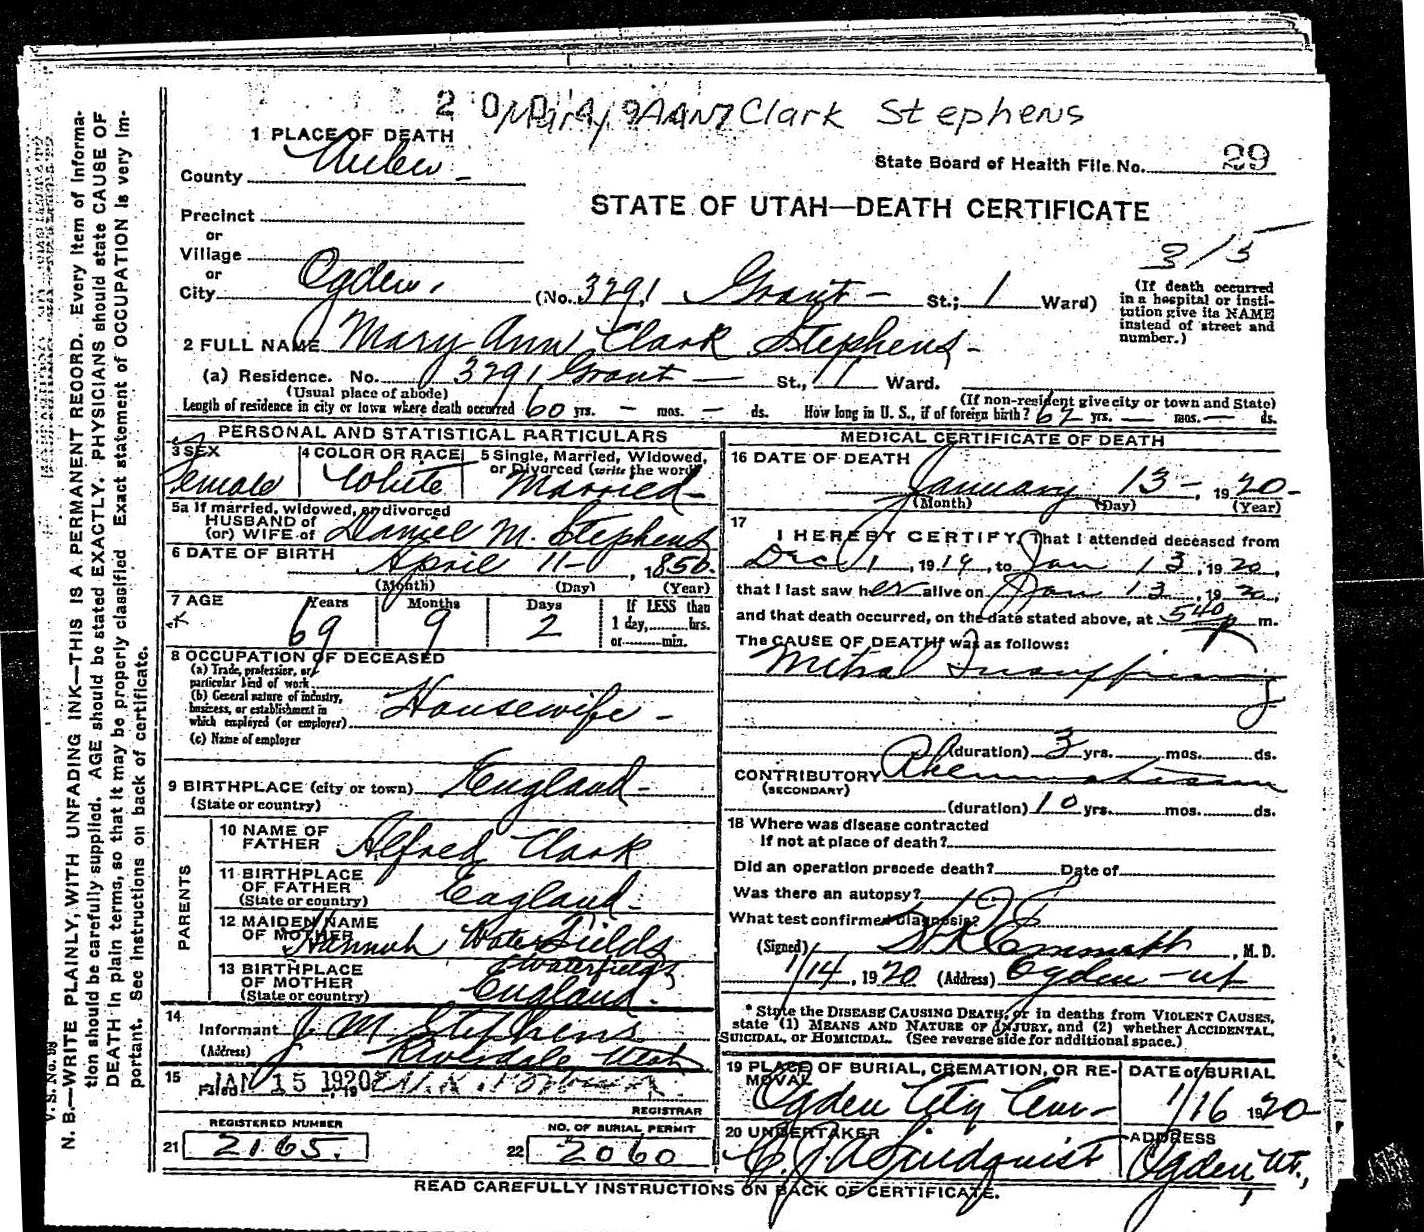 Mary Ann Clark Stephens
1 PLACE OF DEATH
State Board of Health File No. 29
County
STATE OF UTAH—DEATH CERTIFICATE
Precinct
or
Village
or
City Ogden. (No. 3291 Grant - St.; 1 Ward)
(If death occurred
in a hospital or insti-
tution give its NAME
instead of street and
number.)
2 FULL NAME Mary Ann Clark Stephens-
(a) Residence. No. 3291 Grant - St., 1 Ward.
(Usual place of abode) (If non-resident give city or town and State)
Length of residence in city or town where death occurred 60 yrs. - mos. - ds. How long in U. S., if of foreign birth? 62 yrs. - mos. - ds.
PERSONAL AND STATISTICAL PARTICULARS
3 SEX
Female
4 COLOR OR RACE
White
5 Single, Married, Widowed,
or Divorced (write the word)
Married-
5a If married, widowed, or divorced
HUSBAND of
(or) WIFE of Daniel M. Stephens
6 DATE OF BIRTH
April 11-, 1850.
(Month) (Day) (Year)
7 AGE Years Months Days If LESS than
69 9 2 1 day,......hrs.
or......min.
8 OCCUPATION OF DECEASED
(a) Trade, profession, or
particular kind of work
(b) General nature of industry,
business, or establishment in
which employed (or employer) Housewife -
(c) Name of employer
9 BIRTHPLACE (city or town) England-
(State or country)
PARENTS
10 NAME OF
FATHER Alfred Clark
11 BIRTHPLACE
OF FATHER England-
(State or country)
12 MAIDEN NAME
OF MOTHER Hannah Waterfields
13 BIRTHPLACE
OF MOTHER England.
(State or country)
14
Informant J. M. Stephens
(Address) Riverdale Utah
15
Filed JAN 15 1920, 19
REGISTRAR
REGISTERED NUMBER
21 2165.
NO. OF BURIAL PERMIT
22 2060
MEDICAL CERTIFICATE OF DEATH
16 DATE OF DEATH
January 13-, 1920-
(Month) (Day) (Year)
17
I HEREBY CERTIFY, That I attended deceased from
Dec 1, 1919, to Jan 13, 1920,
that I last saw her alive on Jan 13, 1920,
and that death occurred, on the date stated above, at 540 p m.
The CAUSE OF DEATH* was as follows:
Mitral Insufficiency
(duration) 3 yrs. mos. ds.
CONTRIBUTORY Rheumatism
(SECONDARY)
(duration) 10 yrs. mos. ds.
18 Where was disease contracted
If not at place of death?
Did an operation precede death? Date of
Was there an autopsy?
What test confirmed diagnosis?
(Signed) , M. D.
1/14, 1920 (Address) Ogden - ut
* State the DISEASE CAUSING DEATH, or in deaths from VIOLENT CAUSES,
state (1) MEANS AND NATURE OF INJURY, and (2) whether ACCIDENTAL,
SUICIDAL, or HOMICIDAL. (See reverse side for additional space.)
19 PLACE OF BURIAL, CREMATION, OR RE-
MOVAL
Ogden City Cem-
DATE of BURIAL
1/16 1920
20 UNDERTAKER
Lindquist
ADDRESS
Ogden, Ut.,
READ CAREFULLY INSTRUCTIONS ON BACK OF CERTIFICATE.
N. B.—WRITE PLAINLY, WITH UNFADING INK—THIS IS A PERMANENT RECORD. Every item of Informa-
tion should be carefully supplied. AGE should be stated EXACTLY. PHYSICIANS should state CAUSE OF
DEATH in plain terms, so that it may be properly classified. Exact statement of OCCUPATION is very im-
portant. See instructions on back of certificate.